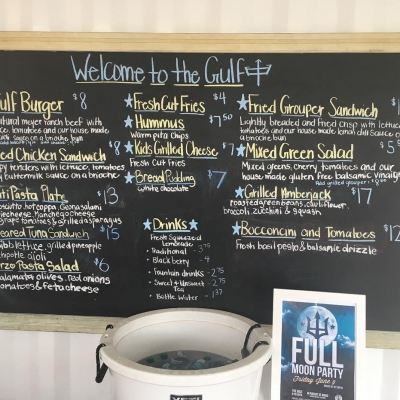 Welcome to the Gulf
ulf Burger $8
natural meyer ranch beef with
tomatoes and our house made
sauce on a brioche bun
ed Chicken Sandwich $8
tenders with lettuce, tomatoes
buttermilk on a brioche bun
Pasta Plate $13
hot coppa, Genoa salami
cheese, manchego cheese
grape tomatoes & grilled asparagus
eared Tuna Sandwich $15
grilled pineapple
chipotle aioli
rzo Pasta Salad $6
alamata olives, red onions
omatoes & feta cheese
Fresh Cut Fries $4
Hummus $7.50
Warm pita Chips
Kids Grilled Cheese $7
Fresh Cut Fries
Bread Pudding $7
White chocolate
Drinks
Fresh Squeezed
Lemonade
- Traditional - 3.75
- Blackberry - 4
- Fountain drinks - 2.75
- Sweet & Unsweet - 2.75
Tea
- Bottle Water - 1.37
Fried Grouper Sandwich $1
Lightly breaded and fried crisp with lettuce
tomatoes and our house made lemon dill sauce on
a brioche bun
Mixed Green Salad $5
Mixed greens, cherry tomatoes and our
house made gluten free balsamic vinaig
Add grilled grouper
Grilled Amberjack $17
roasted green beans, cauliflower,
broccoli, zucchini & squash
Bocconcini and Tomatoes $12
Fresh basil pesto & balsamic drizzle
FULL
MOON PARTY
Friday June 9
YETI